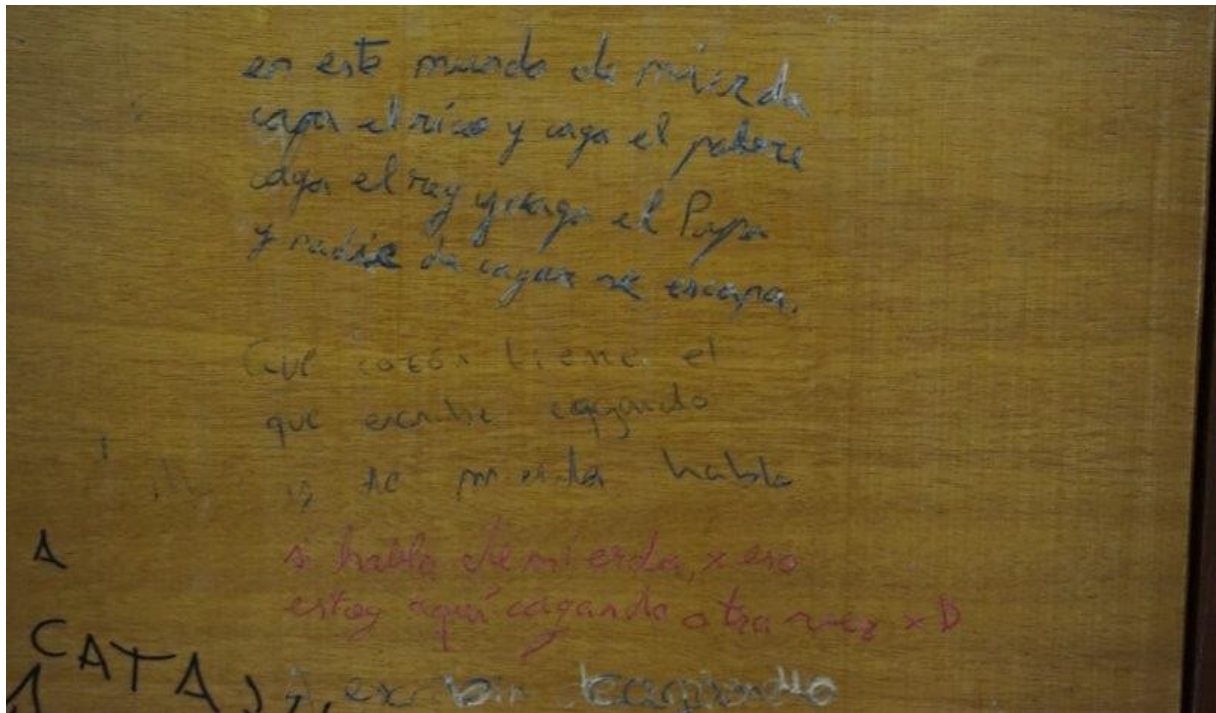 en este mundo de mierda
caga el rico y caga el pobre
caga el rey y caga el Papa
y nadie de cagar se escapa.
Que razón tiene el
que escribe cagando
y de mierda habla
si hablo de mierda, x eso
estoy aquí cagando otra vez xD
A
CATA